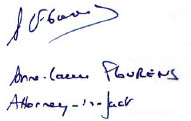 Anne-Laure FLOURENS
Attorney-in-fact